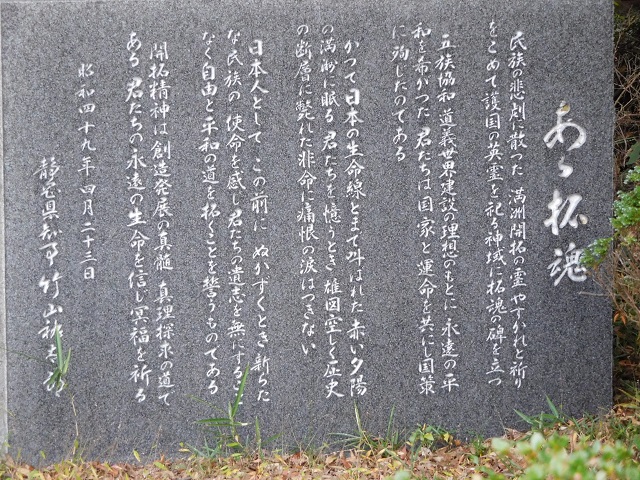 あゝ拓魂
民族の悲劇に散った 満洲開拓の霊 やすかれと祈り
をこめて護国の英霊を祀る神域に拓魂の碑を立つ
五族協和 道義世界建設の理想のもとに 永遠の平
和を希かつた 君たちは国家と運命を共にし国策
に殉じたのである
かつて日本の生命線とまで叫ばれた 赤い夕陽
の満洲に眠る 君たちを憶うとき 雄図空しく歴史
の断層に斃れた非命に痛恨の涙はつきない
日本人として この前に ぬかずくとき 新らた
な民族の 使命を感じ 君たちの遺志を無にするこ
なく自由と平和の道を拓くことを誓うものである
開拓精神は創造発展の真髄 真理探求の道で
ある 君たちの永遠の生命を信じ冥福を祈る
昭和四十九年四月二十三日
静岡県知事 竹山祐太郎